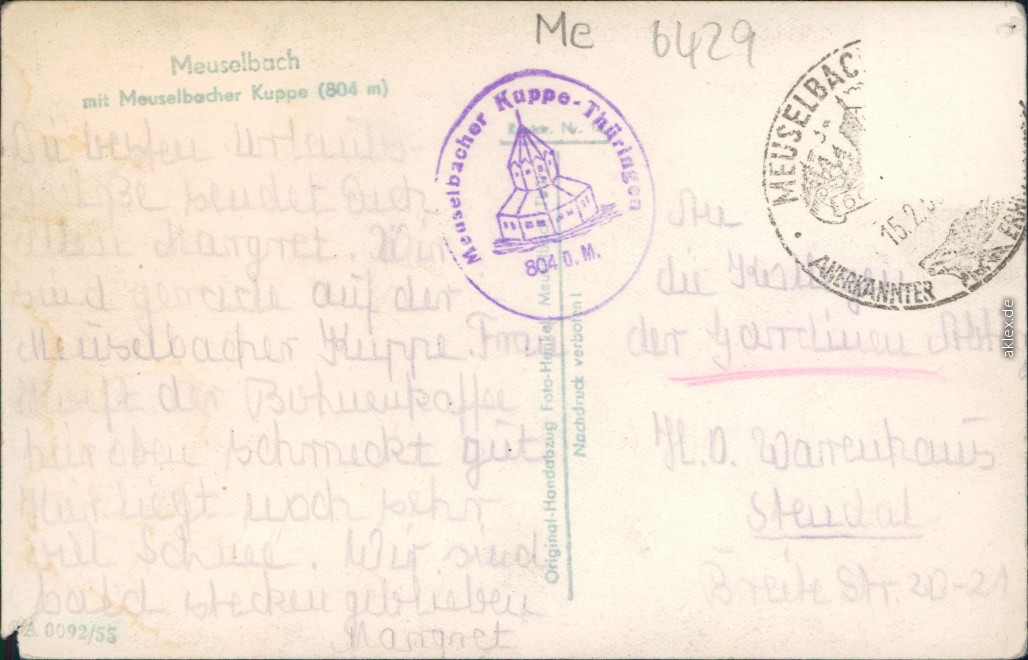 Me 6429
Meuselbach
mit Meuselbacher Kuppe (804 m)
Meuselbacher Kuppe-Thüringen
804 ü. M.
MEUSELBACH
15.2.
ANERKANNTER
Die besten Urlaubs-
grüße sendet Euch
Margret. Wir
sind gerade auf der
Meuselbacher Kuppe. Frau
der Bohnenkaffee
hier oben schmeckt gut
Hier liegt noch sehr
viel Schnee. Wir sind
bald stecken geblieben
Margret
A 0092/55
Original-Handabzug Foto-
Nachdruck verboten!
An
die
der Gardinen Abt
H.O. Warenhaus
Stendal
Breite Str. 20-21
aklex.de